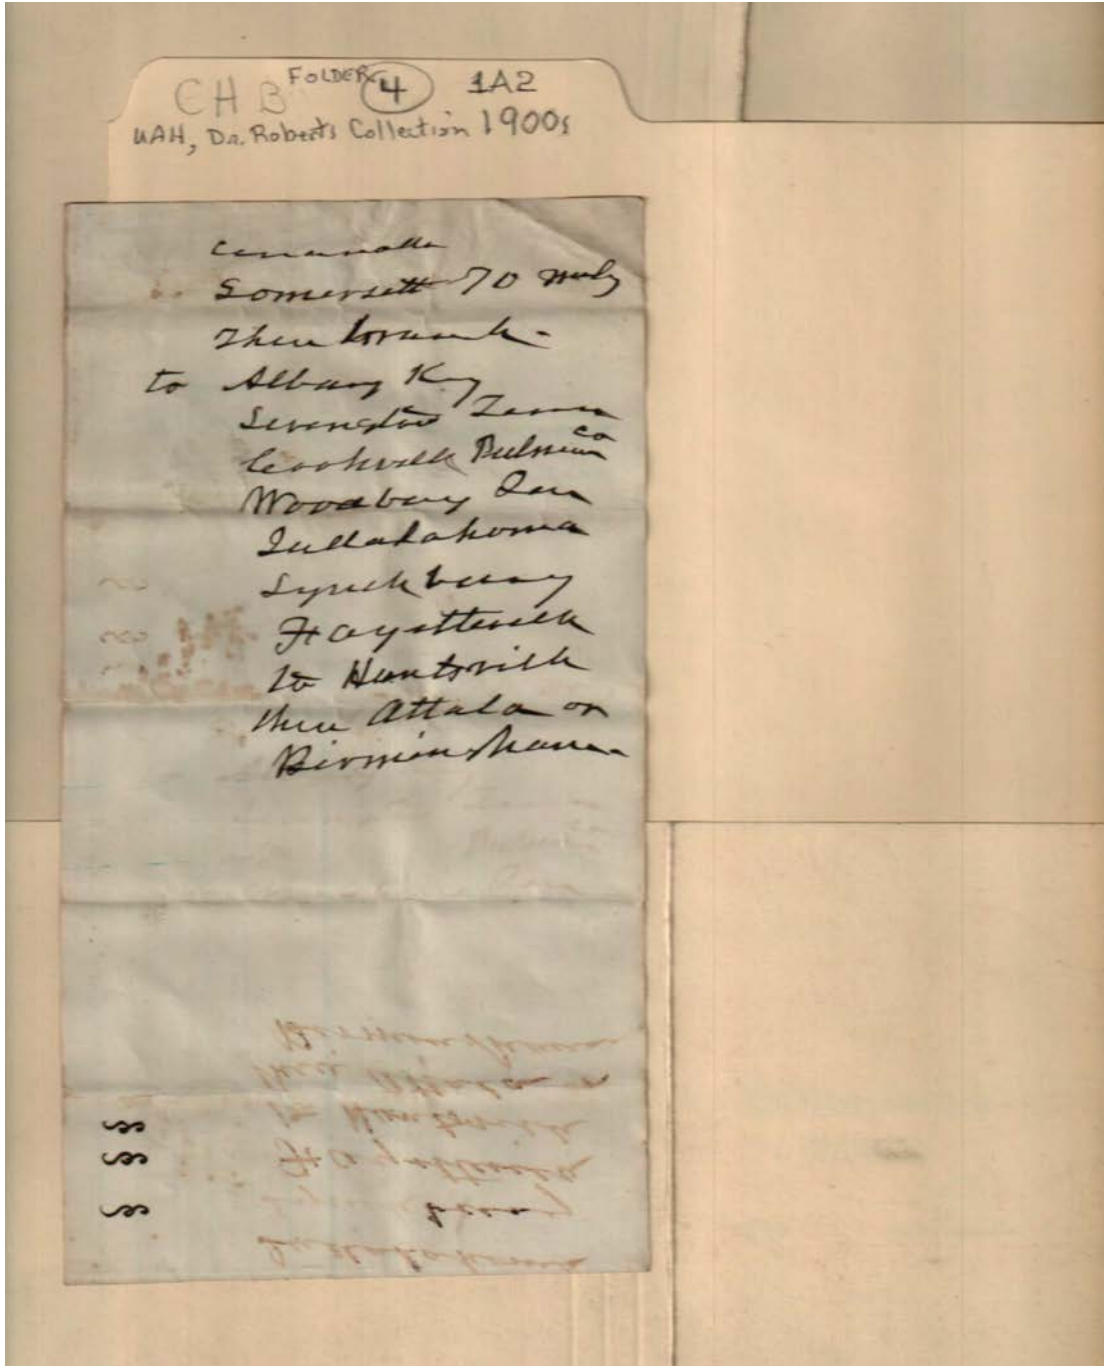 CHB FOLDER 4 1A2
UAH, Dr. Roberts Collection 1900s
Somersett 70 mls
Then
to Albany Ky
Livingston Tenn
Cookvill Putnam co
Woodbury Ten
Tullalahoma
Lynchburg
Fayettevill
to Huntsvill
then Attala or
Birmingham